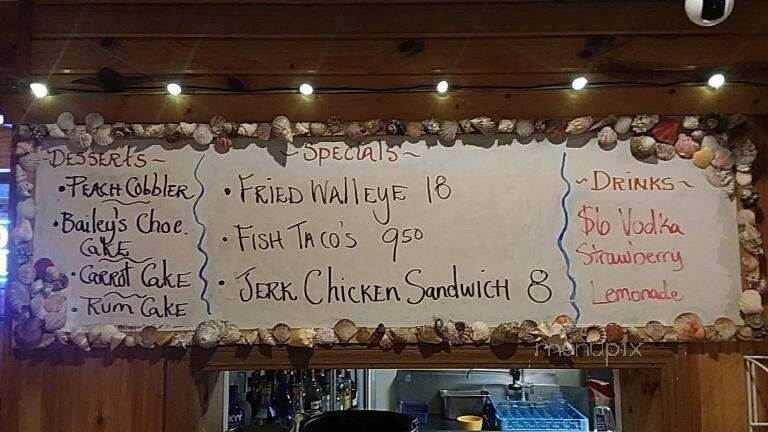 ~DESSERTS~
• PEACH COBBLER
• Bailey's Choc.
CAKE
• CARROT CAKE
• RUM CAKE
~SPECIALS~
• FRIED WALLEYE 18
• FISH TACO'S 950
• JERK CHICKEN SANDWICH 8
~DRINKS~
$6 Vodka
Strawberry
Lemonade
menupix